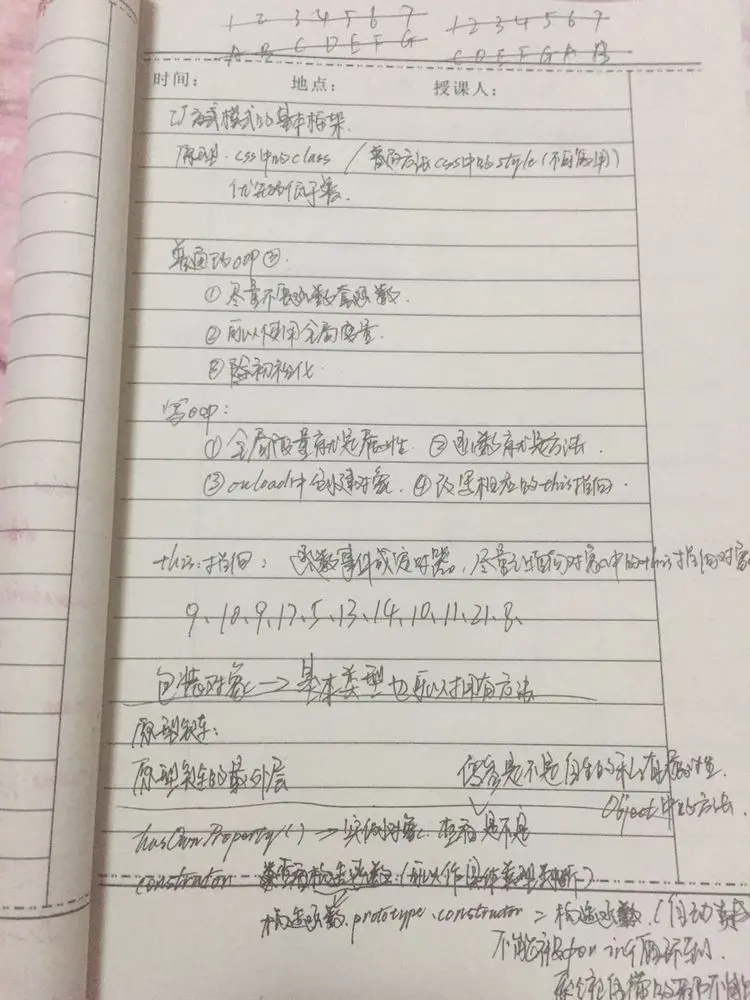 1 2 3 4 5 6 7 1 2 3 4 5 6 7
A B C D E F G C D E F G A B
时间: 地点: 授课人:
工厂方式模式的基本框架.
原型: css中的class / 普通方法css中的style (不可复用)
优先级低于
普通的OOP ③.
① 尽量不要函数套函数.
② 可以使用全局变量.
③ 初始化.
写OOP:
① 全局变量就是属性. ② 函数就是方法.
③ onload中创建对象. ④ 改变相应的this指向.
this指向: 函数事件或定时器。尽量让面向对象中的this指向对象
9、10、9、17、5、13、14、10、11、21、8、
包装对象 → 基本类型也可以拥有方法
原型链:
原型链的最外层 是不是自身的私有属性.
Object中的方法.
hasOwnProperty() → 实例对象. 查看是不是
constructor 查看构造函数 (可以作具体类型判断)
构造函数.prototype.constructor = 构造函数 (自动
不能被for in循环到.